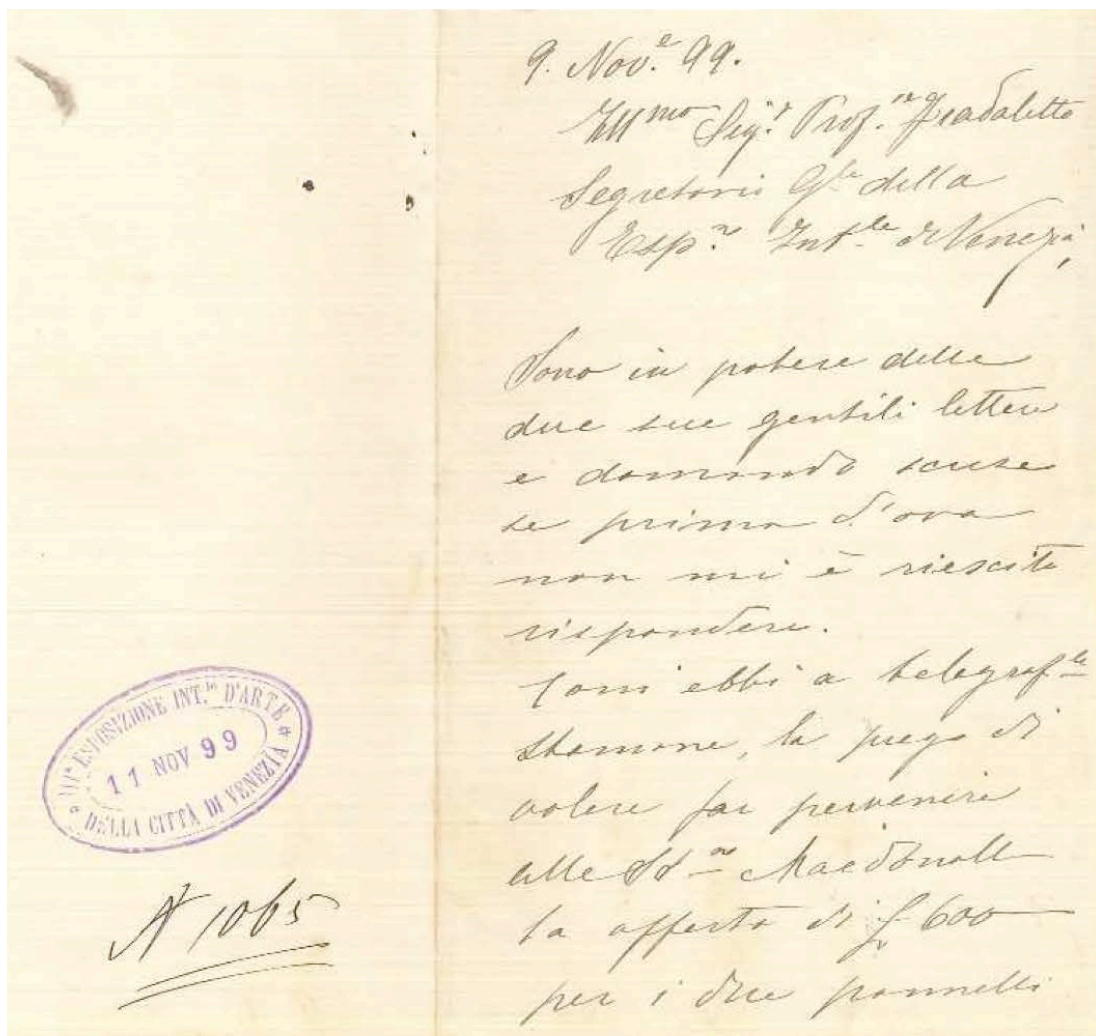 9. Nov.e 99.
Ill mo Sig.r Prof.re Fradeletto
Segretario Gle della
Esp.ne Intle di Venezia,
Sono in potere delle
due sue gentili lettere
e domando scuse
se prima d'ora
non mi è riescito
rispondere.
Come ebbi a telegraf.le
stamane, la prego di
volere far pervenire
alle Sd.ne Macdonald
la offerta di £ 600
per i due pannelli
IIIa ESPOSIZIONE INT.le D'ARTE
11 NOV 99
DELLA CITTÀ DI VENEZIA
N 1065